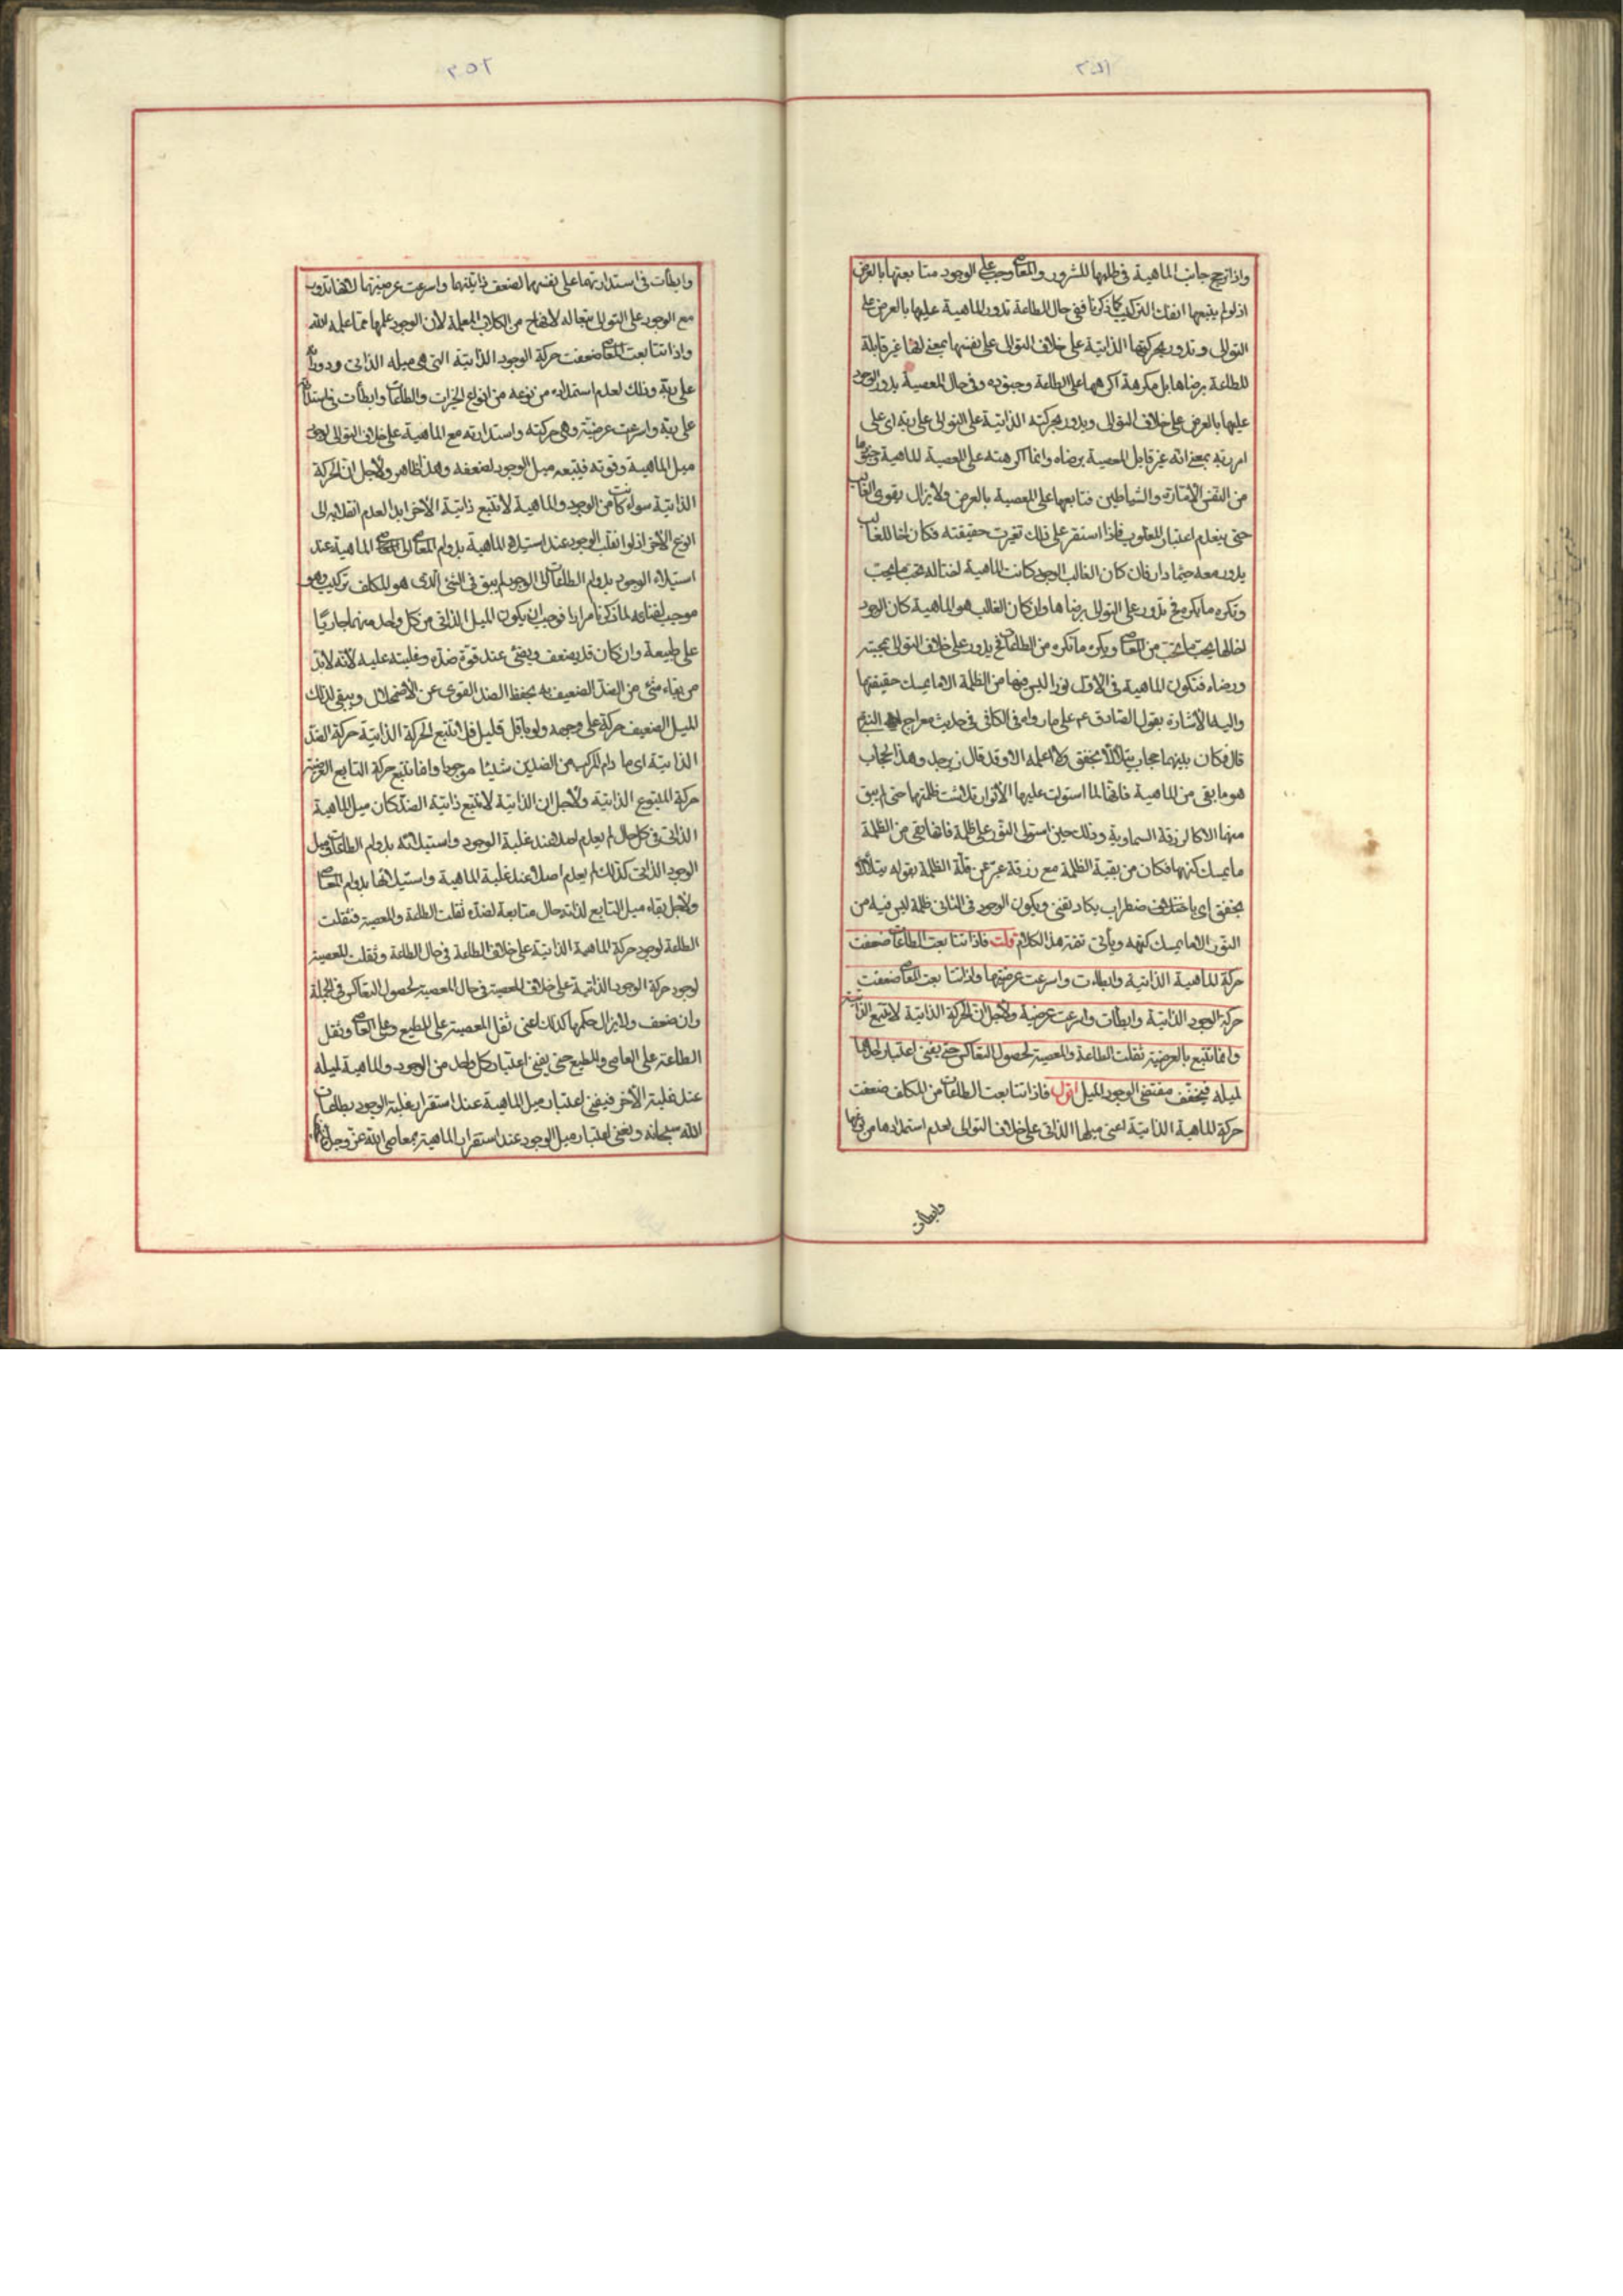 ٢٥١
واذا ترجح جانب الماهية في طلبها للشرور والمعاصي وجب على الوجود متابعتها بالعرض
اذ لو لم يتبعها انفك التركيب كما ذكرنا ففي حال الطاعة تدور الماهية عليها بالعرض على
التوالي وتدور بحركتها الذاتية على خلاف التوالي على نفسها بمعنى انها غير قابلة
للطاعة برضاها بل مكرهة اكرهها على الطاعة وجنوده وفي حال المعصية يدور الوجود
عليها بالعرض على خلاف التوالي ويدور بحركته الذاتية على التوالي على ربه اي على
امر ربه بمعنى انه غير قابل للمعصية برضاه وانما اكرهته على المعصية الماهية وجنودها
من النفس الامارة والشياطين فتابعها على المعصية بالعرض ولا يزال يقوى الغالب
حتى ينعدم اعتبار المغلوب فاذا استقر على ذلك تغيرت حقيقته فكان اخا للغالب
يدور معه حيثما دار فان كان الغالب الوجود كانت الماهية اختا له تحب ما يحب
وتكره ما يكره فح تدور على التوالي برضاها وان كان الغالب هو الماهية كان الوجود
اخا لها يحب ما تحب من المعاصي ويكره ما تكره من الطاعات فح يدور على خلاف التوالي بمحبته
ورضاه فتكون الماهية في الاول نورا ليس فيها من الظلمة الا ما يمسك حقيقتها
واليه الاشارة بقول الصادق عم على ما رواه في الكافي في حديث معراج النبي
قال فكان بينهما حجاب يتلألأ بخفق ولا اعلمه الا وقد قال زبرجد وهذا الحجاب
هو ما بقي من الماهية فانها لما استولت عليها الانوار تلاشت ظلمتها حتى لم يبق
منها الا كالزرقة السماوية وذلك حين استولى النور على ظلمة فانها بقي من الظلمة
ما يمسك كنهها فكان من بقية الظلمة مع زرقة عبر عن قلة الظلمة بقوله يتلألأ
بخفق اي باضطراب يكاد يفنى ويكون الوجود في الثاني ظلمة ليس فيه من
النور الا ما يمسك كنهه ويأتي تتمة هذا الكلام قلت فاذا تتابعت الطاعات ضعفت
حركة الماهية الذاتية وابطأت واسرعت عرضيتها واذا تتابعت المعاصي ضعفت
حركة الوجود الذاتية وابطأت واسرعت عرضية ولاجل ان الحركة الذاتية لا تتبع الذاتية
وانما تتبع بالعرضية ثقلت الطاعة والمعصية لحصول التعاكس حتى يفنى اعتبار احدهما
لميله فيخفف مقتضى الوجود الميل اقول فاذا تتابعت الطاعات من المكلف ضعفت
حركة الماهية الذاتية اعني ميلها الذاتي على خلاف التوالي لعدم استمدادها من نوعها
وابطأت
٢٥٢
وابطأت في استدارتها على نفسها لضعف ذايتها واسرعت عرضيتها لانها تدور
مع الوجود على التوالي متبعا له لانها ح من الكلاب المعلمة لان الوجود علمها مما علمه الله
واذا تتابعت المعاصي ضعفت حركة الوجود الذاتية التي هي ميله الذاتي ودورانه
على ربه وذلك لعدم استمداده من نوعه من انواع الخيرات والطاعات وابطأت في استدارته
على ربه واسرعت عرضيته وهي حركته واستدارته مع الماهية على خلاف التوالي لوجود
ميل الماهية وقوته فيتبعه ميل الوجود لضعفه وهذا ظاهر ولاجل ان الحركة
الذاتية سواء كانت من الوجود والماهية لا تتبع ذاتية الاخر ابدا لعدم انقلابه الى
النوع الاخر اذ لو انقلب الوجود عند استيلاء الماهية بدوام المعاصي الماهية عند
استيلاء الوجود بدوام الطاعات الى الوجود لم يبق في الشيء الذي هو المكلف تركيب وهو
موجب لفنائه لما ذكرنا مرارا فوجب ان يكون الميل الذاتي من كل واحد منهما جاريا
على طبيعة وان كان قد يضعف ويفنى عند قوة ضده وغلبته عليه لانه لا بد
من بقاء شيء من الضد الضعيف به يحفظ الضد القوي عن الاضمحلال ويبقى لذلك
الميل الضعيف حركة على وجهه ولو باقل قليل فلا تتبع الحركة الذاتية حركة الضد
الذاتية اي ما دام المركب من الضدين شيئا موجودا وانما تتبع حركة التابع العرضية
حركة المتبوع الذاتية ولاجل ان الذاتية لا تتبع ذاتية الضد كان ميل الماهية
الذاتي في كل حال لم يعدم اصلا عند غلبة الوجود واستيلائه بدوام الطاعات وميل
الوجود الذاتي كذلك لم يعدم اصلا عند غلبة الماهية واستيلائها بدوام المعاصي
ولاجل بقاء ميل التابع لذاته حال متابعة لضده ثقلت الطاعة والمعصية فثقلت
الطاعة لوجود حركة الماهية الذاتية على خلاف الطاعة في حال الطاعة وثقلت المعصية
لوجود حركة الوجود الذاتية على خلاف المعصية في حال المعصية لحصول التعاكس في الجملة
وان ضعف ولا يزال حكمها كذلك اعني ثقل المعصية على المطيع وعلى العاصي وثقل
الطاعة على العاصي والمطيع حتى يفنى اعتبار كل واحد من الوجود والماهية لميله
عند غلبة الاخر فيفنى اعتبار ميل الماهية عند استقرار غلبة الوجود بطاعات
الله سبحانه ويفنى اعتبار ميل الوجود عند استقرار الماهية بمعاصي الله عز وجل